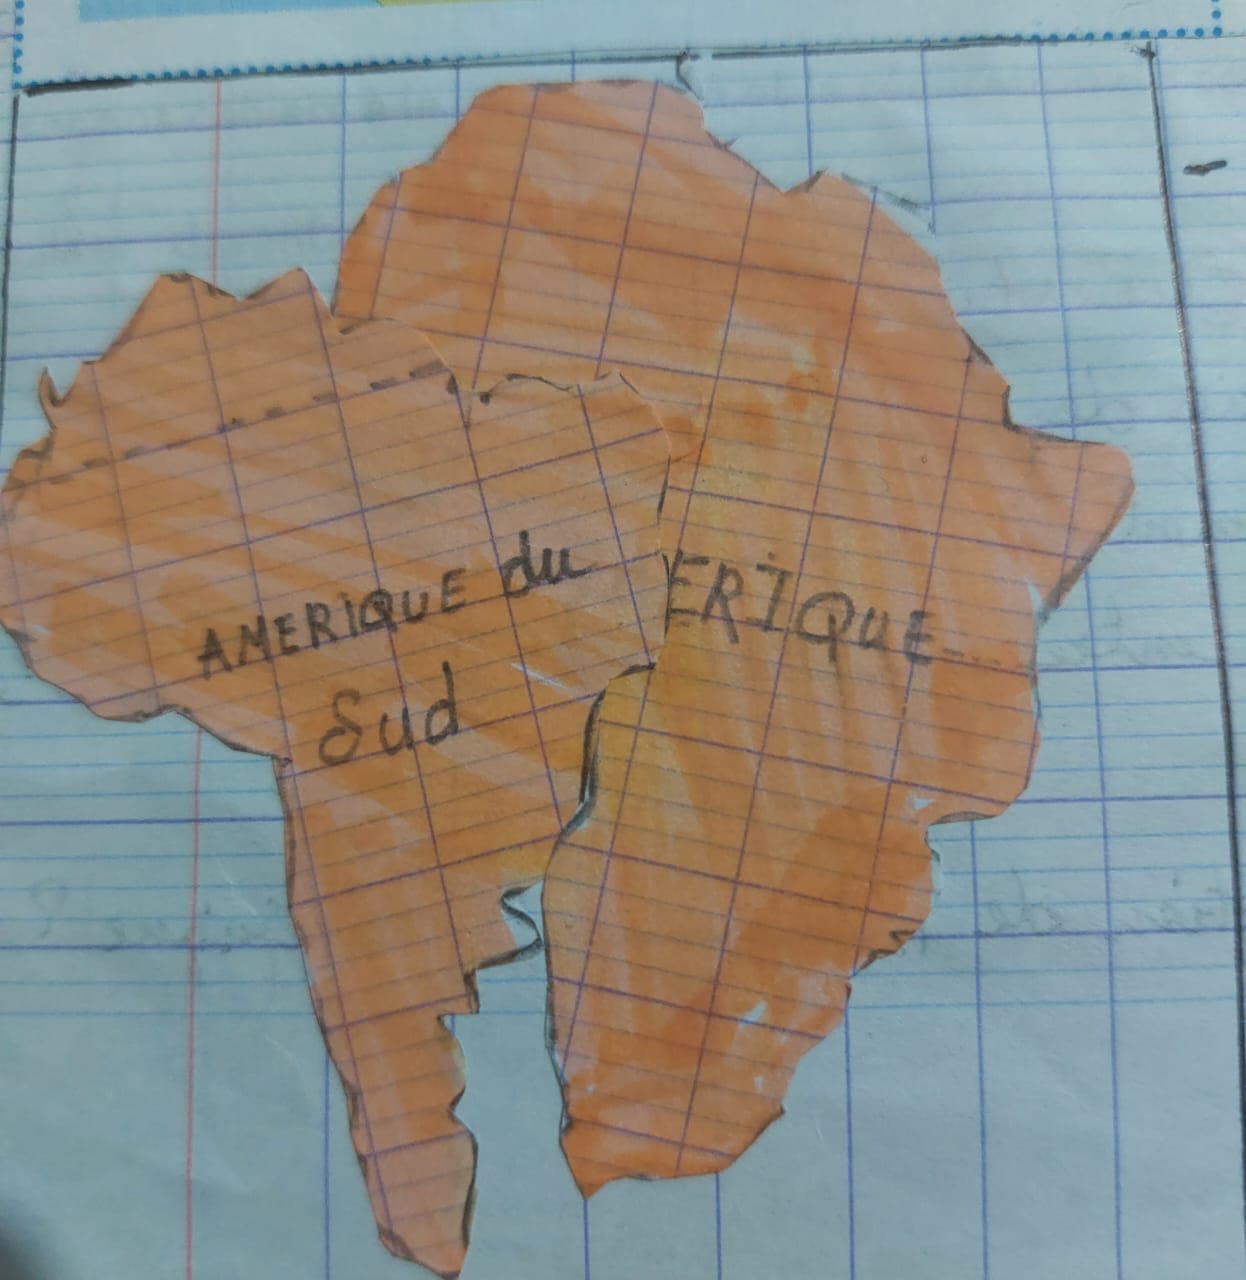 AMERIQUE du
Sud
ERIQUE